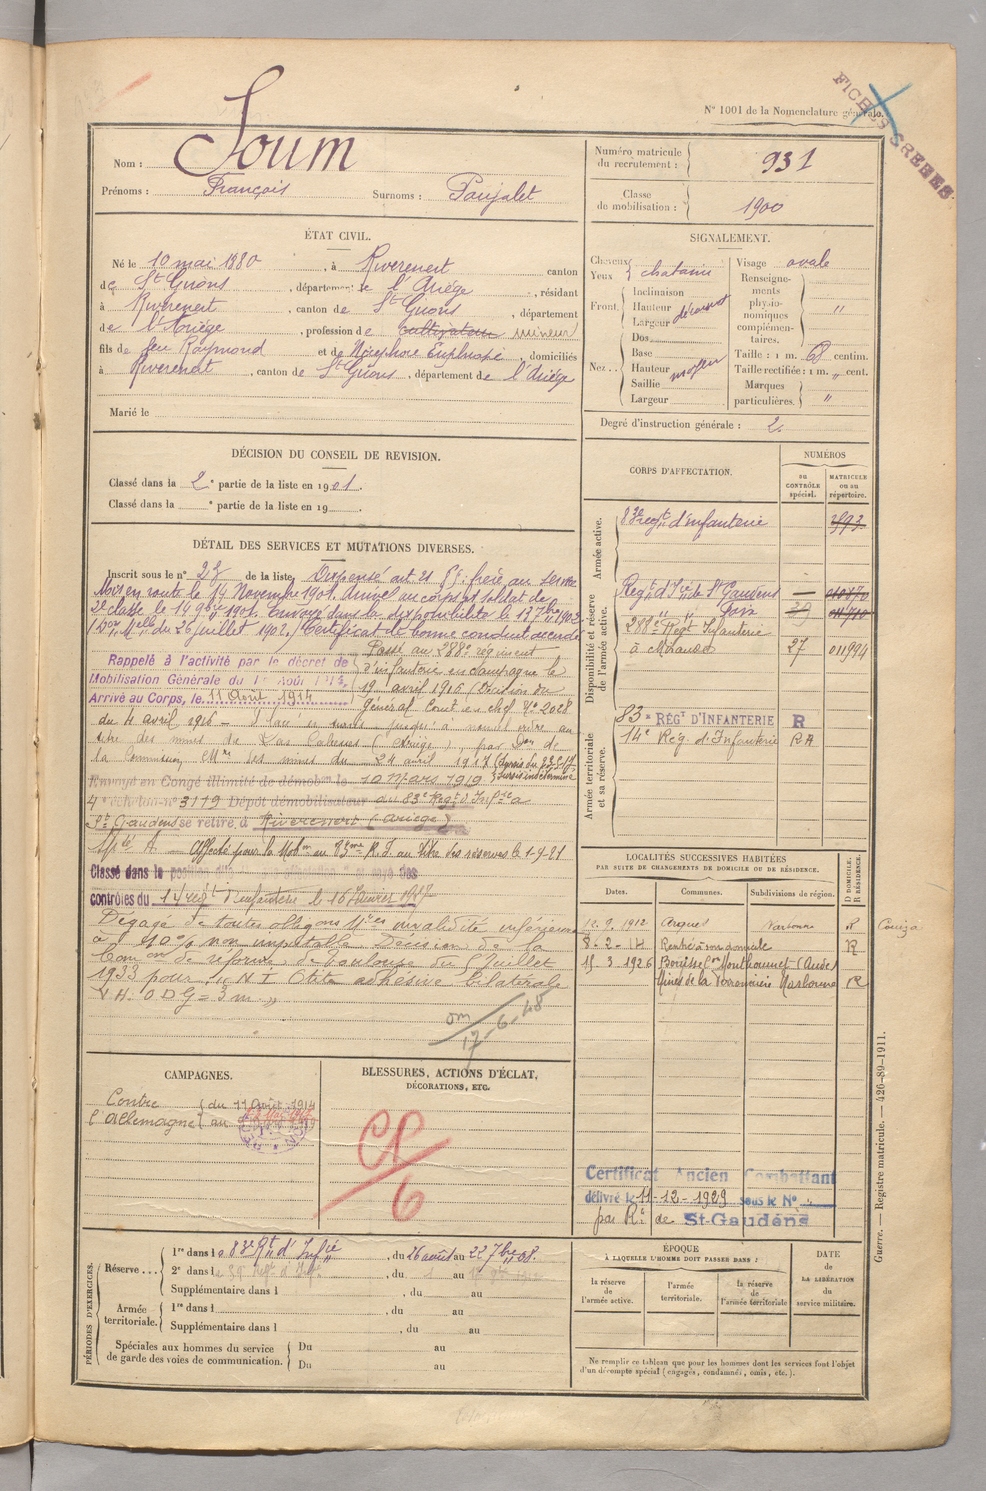 N° 1001 de la Nomenclature générale.
FICHES GREENES
Nom : Soum
Prénoms : François Surnoms : Poujalet
Numéro matricule du recrutement : 931
Classe de mobilisation : 1900
ÉTAT CIVIL.
Né le 10 mai 1880, à Riverenert canton
de St Girons, département de l'Ariège, résidant
à Riverenert, canton de St Girons, département
de l'Ariège, profession de cultivateur mineur
fils de feu Raymond et de Nicéphore Euphrasie, domiciliés
à Riverenert, canton de St Girons, département de l'Ariège
Marié le
SIGNALEMENT.
Cheveux
Yeux châtains
Front. Inclinaison
Hauteur
Largeur découvert
Nez... Dos
Base
Hauteur moyen
Saillie
Largeur
Visage ovale
Renseignements physionomiques complémentaires. "
Taille : 1 m. 68 centim.
Taille rectifiée : 1 m. " cent.
Marques particulières. "
Degré d'instruction générale : 2.
DÉCISION DU CONSEIL DE REVISION.
Classé dans la 2e partie de la liste en 1901.
Classé dans la e partie de la liste en 19
DÉTAIL DES SERVICES ET MUTATIONS DIVERSES.
Inscrit sous le n° 27 de la liste, Dispensé art. 21 frère au service
Mis en route le 14 Novembre 1901. Arrivé au corps et soldat de
2e classe le 14 9bre 1901. Envoyé dans la disponibilité le 13 7bre 1902
(Don Mlle du 26 juillet 1902.) Certificat de bonne conduite accordé
Rappelé à l'activité par le décret de
Mobilisation Générale du 1er Août 1914.
Arrivé au Corps, le 11 Août 1914
Passé au 288e régiment
d'infanterie en campagne le
19 avril 1916 (Décision du
Général Comt en chef N° 2028
du 4 avril 1916 - Placé en sursis jusqu'à nouvel ordre au
titre des mines de Las Cabesses (Ariège), par Don de
la Commission Mre des mines du 24 avril 1917
Envoyé en Congé illimité de démobon le 10 Mars 1919
4e échelon n° 3119 Dépôt démobilisateur du 83e Regt d'Infrie à
St Gaudens se retire à Riverenert (Ariège)
Affecté pour la Mobon au 83me R.I. au titre des réserves le 1-9-21
Classé dans la position dite sans affectation et rayé des
contrôles du 14 regt d'infanterie le 16 Janvier 1927
Dégagé de toutes obligons Mres invalidité inférieure
à 10% non imputable Décision de la
Comon de réforme de Toulouse du 5 Juillet
1933 pour "N I Otite adhésive bilatérale
V.H. O D G = 3 m"
om
17-6-48
CORPS D'AFFECTATION.
NUMÉROS
au CONTRÔLE spécial.
MATRICULE ou au répertoire.
Armée active.
83e regt d'infanterie 3593
Disponibilité et réserve de l'armée active.
Regt d'Irie de St Gaudens — 010870
" " Foix 39 011710
288e Regt Infanterie
à Mirande 27 011994
Armée territoriale et sa réserve.
83e RÉGt D'INFANTERIE R
14e Reg. d'Infanterie RA
LOCALITÉS SUCCESSIVES HABITÉES
PAR SUITE DE CHANGEMENTS DE DOMICILE OU DE RÉSIDENCE.
Dates. Communes. Subdivisions de région. D DOMICILE. R RÉSIDENCE.
12.9.1912 Arques Narbonne R Couiza
8-2-14 Rentré à son domicile R
15.3.1926 Bouisse Con Mouthoumet (Aude)
Mines de la Narbonne R
CAMPAGNES.
Contre l'Allemagne du 11 Août 1914
au
BLESSURES, ACTIONS D'ÉCLAT,
DÉCORATIONS, ETC.
6
Certificat Ancien Combattant
délivré le 11-12-1929 sous le N° "
par Rt de St-Gaudens
PÉRIODES D'EXERCICES.
Réserve... 1re dans le 83e Rt d'Infie, du 26 août au 22 7bre 08.
2e dans le 59e regt d'Infie, du 1 au 17
Supplémentaire dans l , du au
Armée territoriale. 1re dans l , du au
Supplémentaire dans l , du au
Spéciales aux hommes du service de garde des voies de communication. Du au
Du au
ÉPOQUE
À LAQUELLE L'HOMME DOIT PASSER DANS :
la réserve de l'armée active.
l'armée territoriale.
la réserve de l'armée territoriale
DATE de LA LIBÉRATION du service militaire.
Ne remplir ce tableau que pour les hommes dont les services font l'objet
d'un décompte spécial (engagés, condamnés, omis, etc.).
Guerre. — Registre matricule. — 426-89-1911.